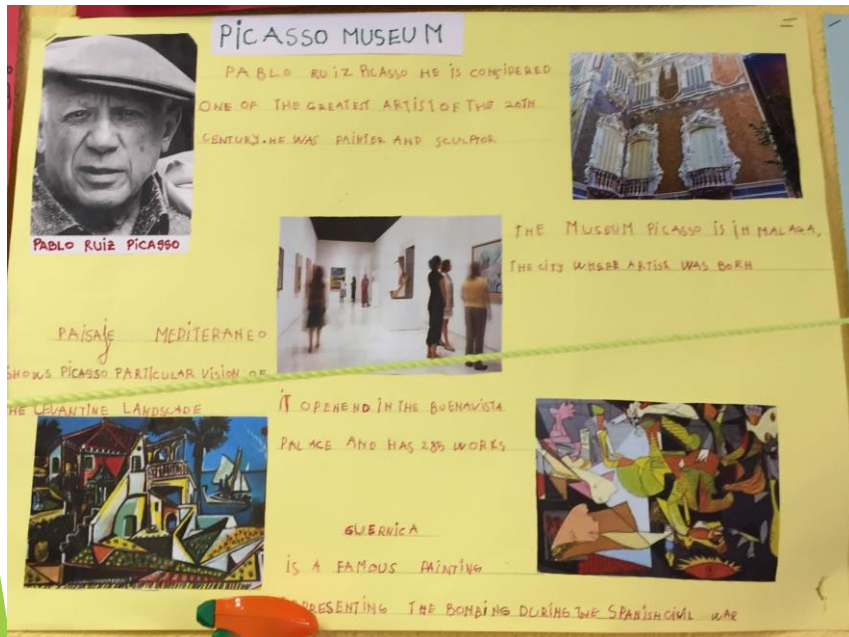 PICASSO MUSEUM
PABLO RUIZ PICASSO HE IS CONSIDERED
ONE OF THE GREATEST ARTIST OF THE 20TH
CENTURY. HE WAS PAINTER AND SCULPTOR
PABLO RUIZ PICASSO
THE MUSEUM PICASSO IS IN MALAGA,
THE CITY WHERE ARTIST WAS BORN
PAISAJE MEDITERANEO
SHOWS PICASSO PARTICULAR VISION OF
THE LEVANTINE LANDSCADE
IT OPENEND IN THE BUENAVISTA
PALACE AND HAS 285 WORKS
GUERNICA
IS A FAMOUS PAINTING
REPRESENTING THE BOMBING DURING THE SPANISH CIVIL WAR